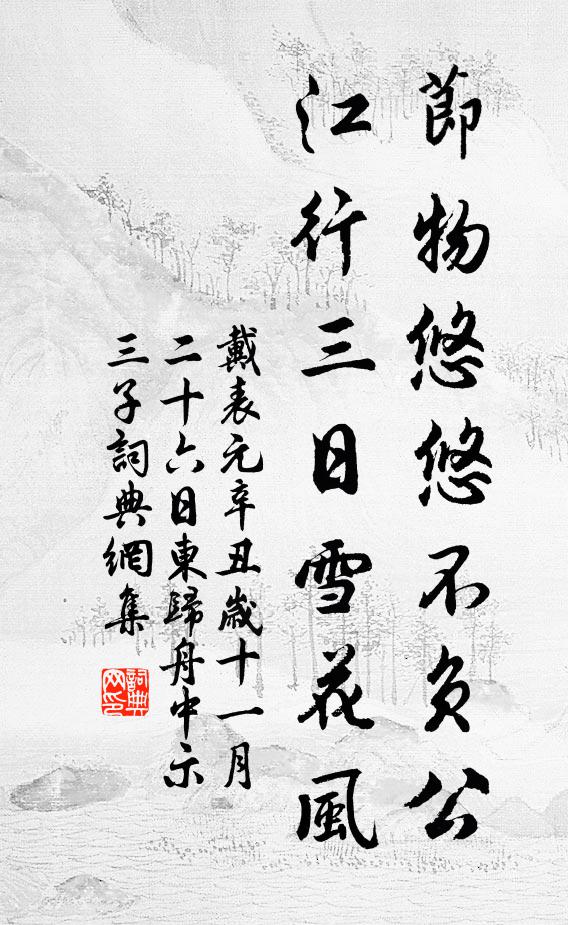 節物悠悠不負公
江行三日雪花風
戴表元辛丑歲十一月
二十六日東歸舟中示
三子詞典網集
詞典网印